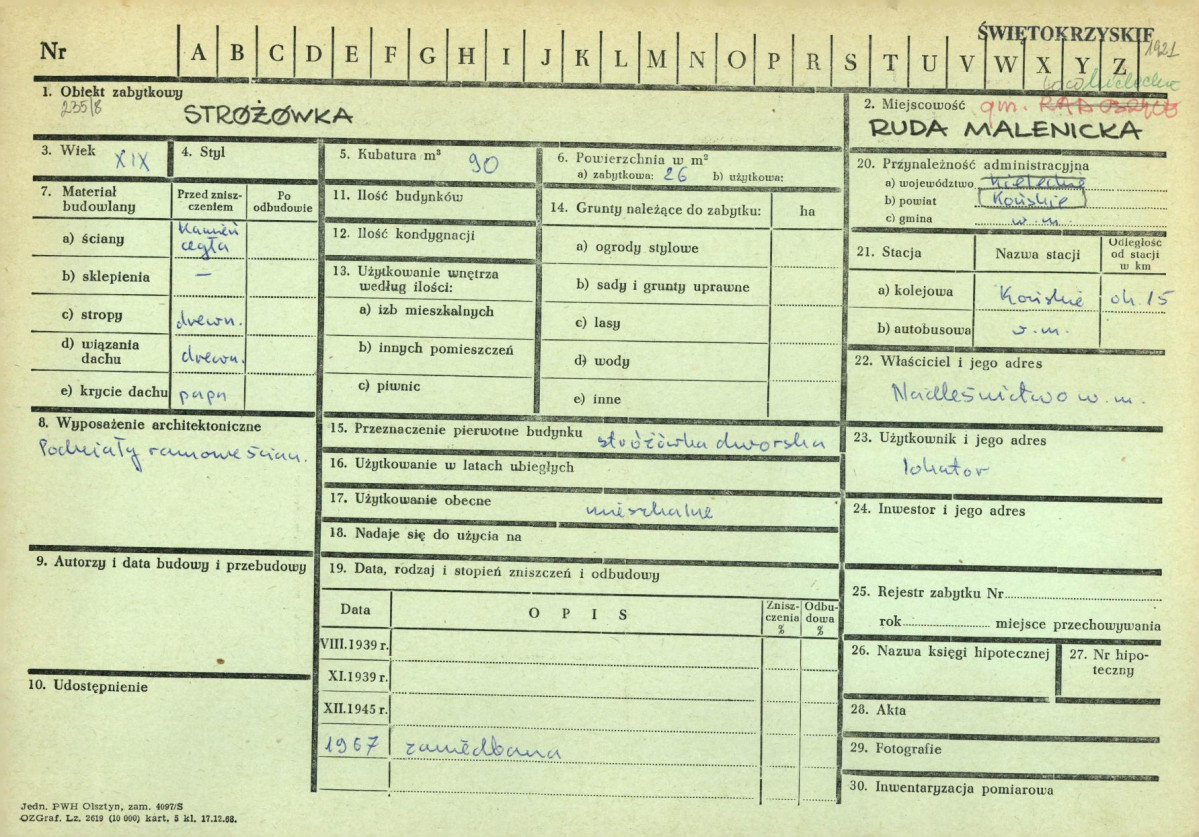 ŚWIĘTOKRZYSKIE
1921
Nr A B C D E F G H I J K L M N O P R S T U V W X Y Z
1. Obiekt zabytkowy
235/8
STRÓŻÓWKA
2. Miejscowość gm. RADOSZYCE
RUDA MALENICKA
3. Wiek XIX
4. Styl
5. Kubatura m³ 90
6. Powierzchnia w m²
a) zabytkowa: 26 b) użytkowa:
7. Materiał budowlany
Przed zniszczeniem
Po odbudowie
a) ściany kamień cegła
b) sklepienia –
c) stropy drewn.
d) wiązania dachu drewn.
e) krycie dachu papa
8. Wyposażenie architektoniczne
Podziały ramowe ścian.
9. Autorzy i data budowy i przebudowy
10. Udostępnienie
11. Ilość budynków
12. Ilość kondygnacji
13. Użytkowanie wnętrza według ilości:
a) izb mieszkalnych
b) innych pomieszczeń
c) piwnic
14. Grunty należące do zabytku: ha
a) ogrody stylowe
b) sady i grunty uprawne
c) lasy
d) wody
e) inne
15. Przeznaczenie pierwotne budynku stróżówka dworska
16. Użytkowanie w latach ubiegłych
17. Użytkowanie obecne mieszkalne
18. Nadaje się do użycia na
19. Data, rodzaj i stopień zniszczeń i odbudowy
Data
OPIS
Zniszczenia %
Odbudowa %
VIII.1939 r.
XI.1939 r.
XII.1945 r.
1967 zaniedbana
20. Przynależność administracyjna
a) województwo Kieleckie
b) powiat Końskie
c) gmina w.m.
21. Stacja
Nazwa stacji
Odległość od stacji w km
a) kolejowa Końskie ok. 15
b) autobusowa w.m.
22. Właściciel i jego adres
Nadleśnictwo w.m.
23. Użytkownik i jego adres
lokator
24. Inwestor i jego adres
25. Rejestr zabytku Nr
rok miejsce przechowywania
26. Nazwa księgi hipotecznej
27. Nr hipoteczny
28. Akta
29. Fotografie
30. Inwentaryzacja pomiarowa
Jedn. PWH Olsztyn, zam. 4097/S
OZGraf. Lz. 2619 (10 000) kart. 5 kl. 17.12.68.